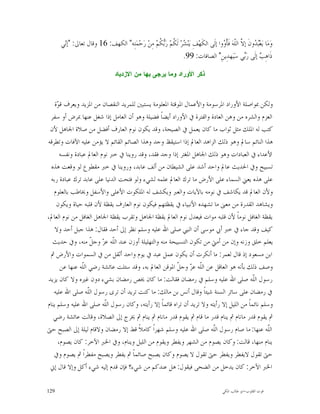 وَمَا يَعْبُدُونَ إِلاَّ اللَّهَ فَأْوُوا إِلَى الكَهْفِ يَنْشُرْ لَكُمْ رَبُّكُمْ مِنْ رَحْمَتِهِ" الكهف: 16 وقال تعالى: "إِنّي
ذَاهِبٌ إِلَى رَبِّي سَيَهْدِينِ" الصافات: 99.
ذكر الأوراد وما يرجى بها من الازدياد
ولكن بمواصلة الأوراد المرسومة والأعمال الموقتة المعلومة يستبين للمريد النقصان من المزيد ويعرف قوّة
العزم والشره من وهن العادة والفترة في الأوراد أيضاً فضيلة وهو أن العامل إذا شغل عنها بمرض أو سفر
كتب له الملك مثل ثواب ما كان يعمل في الصحة، وقد يكون نوم العارف أفضل من صلاة الجاهل لأن
هذا النائم سالم وهو وذلك الزاهد العالم إذا استيقظ وجد وهذا الصائم القائم لا يؤمن عليه الآفات وتطرقه
الأعداء في العبادات وهو ذلك الجاهل المغتر إذا وجد فقد، وقد روينا في خبر نوم العالم عبادة ونفسه
تسبيح وفي الحديث عالم واحد أشد على الشيطان من ألف عابد، وروينا في خبر مقطوع لو وقعت هذه
على هذه يعني السماء على الأرض ما ترك العالم علمه لشيء ولو فتحت الدنيا على عابد ترك عبادة ربه
ولأن العالم قد يكاشف في نومه بالآيات والعبر ويكاشف له الملكوت الأعلى والأسفل ويخاطب بالعلوم
ويشاهد القدرة من معنى ما تشهده الأنبياء في يقظتهم فيكون نوم العارف يقظة لأن قلبه حياة ويكون
يقظة الغافل نوماً لأن قلبه موات فيعدل نوم العالم يقظة الجاهل وتقرب يقظة الجاهل الغافل من نوم العالم،
كيف وقد جاء في خبر أبي موسى أن النبي صلى الله عليه وسلم نظر إلى أحد فقال: هذا جبل أحد ولا
يعلم خلق وزنه وإن من أمتي من تكون التسبيحة منه والتهليلة أوزن عند اللّه عزّ وجلّ منه، وفي حديث
ابن مسعود إذ قال لعمر: ما أنكرت أن يكون عمل عبد في يوم واحد أثقل من في السموات والأرض ثم
وصف ذلك بأنه هو العاقل عن اللّه عزّ وجلّ الموقن العالم به، وقد سئلت عائشة رضي اللّه عنها عن
رسول اللّه صلى الله عليه وسلم في رمضان فقالت: ما كان يخص رمضان بشيء دون غيره ولا كان يزيد
في رمضان على سائر السنة شيئاً وقال أنس بن مالك: ما كنت تريد أن ترى رسول اللّه صلى الله عليه
وسلم نائماً من الليل إلا رأيته ولا تريد أن تراه قائماً إلا رأيته، وكان رسول اللّه صلى الله عليه وسلم ينام
ثم يقوم قدر مانام ثم ينام قدر ما قام ثم يقوم قدر مانام ثم ينام ثم يخرج إلى الصلاة، وقالت عائشة رضي
اللّه عنها: ما صام رسول اللّه صلى الله عليه وسلم شهراً كاملاً قط إلا رمضان ولاقام ليلة إلى الصبح حتى
ينام منها، قالت: وكان يصوم من الشهر ويفطر ويقوم من الليل وينام، وفي الخبر الآخر: كان يصوم،
حتى تقول لايفطر ويفطر حتى تقول لا يصوم وكان يصبح صائماً ثم يفطر ويصبح مفطراً ثم يصوم وفي
الخبر الآخر: كان يدخل من الضحى فيقول: هل عندكم من شيء؟ فإن قدم إليه شيء أكل وإلا قال إني
قوت القلوب-أبو طالب المكي
129